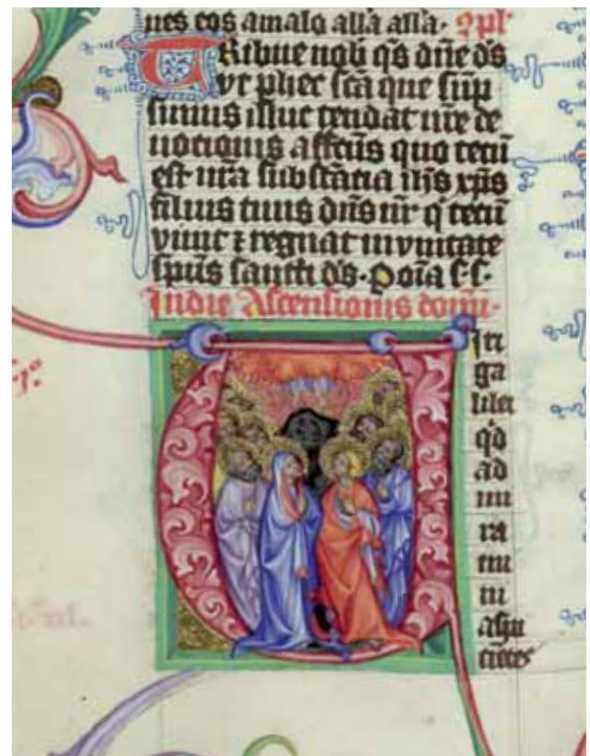 nes eos amalo alla alla· 9pl'
Tribue nob q̄s dn̄e ds
ut p̄ hec sc̄a que sūp
simus illuc tendat nr̄e de
uotionis affc̄us quo tecū
est nr̄a substācia ih̄s xp̄s
filius tuus dn̄s nr̄ q̄ tecū
viuit ⁊ regnat in vnitate
sp̄us sancti d̄s·
In die Ascensionis domi·
Viri
ga
lilei
q̄d
ad
mi
ra
mi
ni
aspi
cietes